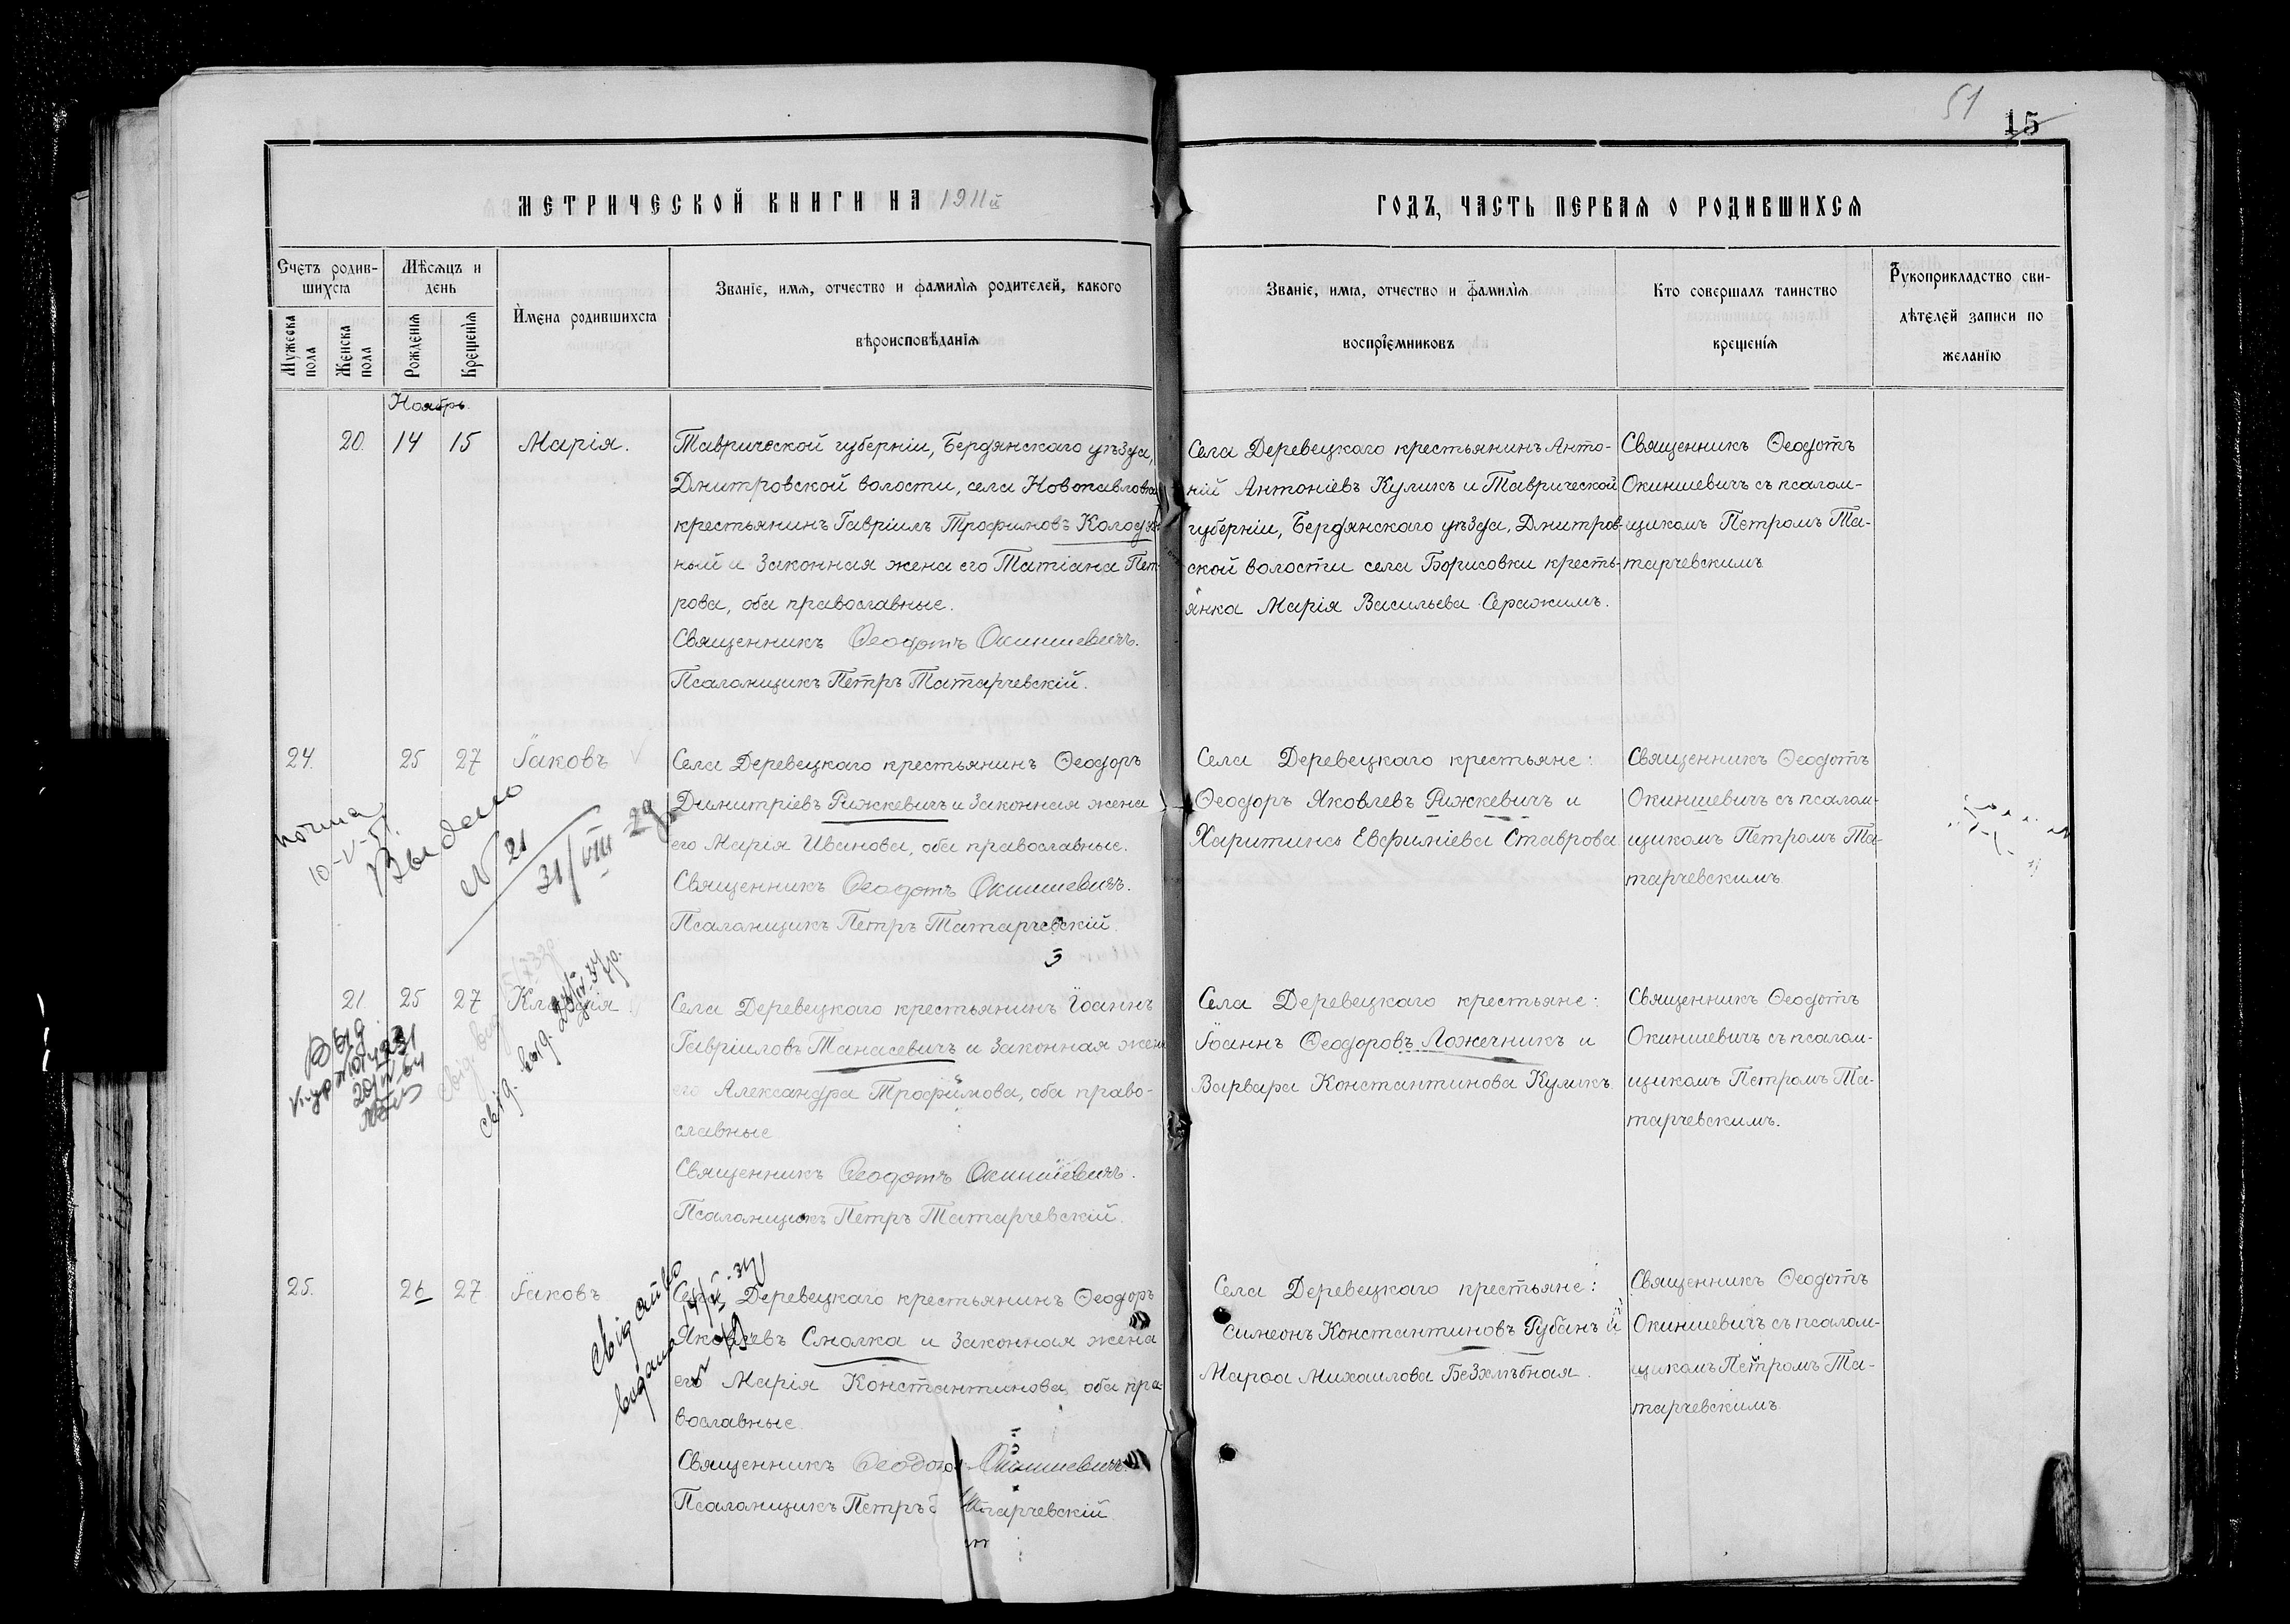 51
15
МЕТРИЧЕСКОЙ КНИГИ НА 1911й
ГОДЪ, ЧАСТЬ ПЕРВАЯ О РОДИВШИХСЯ
Счетъ родив-
шихся
Мужеска
пола
Женска
пола
Мѣсяцъ и
день
Рожденія
Крещенія
Имена родившихся
Званіе, имя, отчество и фамилія родителей, какого
вѣроисповѣданія
Званіе, имя, отчество и фамилія
воспріемниковъ
Кто совершалъ таинство
крещенія
Рукоприкладство сви-
дѣтелей записи по
желанію
Ноябрь
20. 14 15 Марія.
Таврической губерніи, Бердянскаго уѣзда,
Дмитровской волости, села Новопавловка
крестьянинъ Гавріилъ Трофимовъ Колод
ный и законная жена его Татіана Пет
рова, оба православные.
Священникъ Ѳеодотъ Окиншевичъ.
Псаломщикъ Петръ Татарчевскій.
Села Деревецкаго крестьянинъ Анто-
ній Антоніевъ Куликъ и Таврической
губерніи, Бердянскаго уѣзда, Дмитров-
ской волости села Борисовки кресть-
янка Марія Васильева Серажимъ.
Священникъ Ѳеодотъ
Окиншевичъ съ псалом-
щикомъ Петромъ Та-
тарчевскимъ
24. 25 27 Іаковъ
Села Деревецкаго крестьянинъ Ѳеодоръ
Димитріевъ Рижкевичъ и законная жена
его Марія Иванова, оба православные.
Священникъ Ѳеодотъ Окиншевичъ.
Псаломщикъ Петръ Татарчевскій.
Села Деревецкаго крестьяне:
Ѳеодоръ Яковлевъ Рижкевичъ и
Харитина Евфиміева Ставрова
Священникъ Ѳеодотъ
Окиншевичъ съ псалом-
щикомъ Петромъ Та-
тарчевскимъ
10-V-51.
Выдано
N 21
31/VIII 29
21. 25 27 Клавдія
Села Деревецкаго крестьянинъ Іоаннъ
Гавріиловъ Танасевичъ и законная жена
его Александра Трофимова, оба право-
славные
Священникъ Ѳеодотъ Окиншевичъ.
Псаломщикъ Петръ Татарчевскій.
Села Деревецкаго крестьяне:
Іоаннъ Ѳеодоровъ Ложечникъ и
Варвара Константинова Куликъ
Священникъ Ѳеодотъ
Окиншевичъ съ псалом-
щикомъ Петромъ Та-
тарчевскимъ.
Свід. вид.
25. 26 27 Іаковъ
Села Деревецкаго крестьянинъ Ѳеодоръ
Яковлевъ Смолка и законная жена
его Марія Константинова, оба пра-
вославные
Священникъ Ѳеодотъ Окиншевичъ.
Псаломщикъ Петръ Татарчевскій
Села Деревецкаго крестьяне:
Симеонъ Константиновъ Рубанъ и
Марѳа Михаилова Безхлѣбная.
Священникъ Ѳеодотъ
Окиншевичъ съ псалом-
щикомъ Петромъ Та-
тарчевскимъ